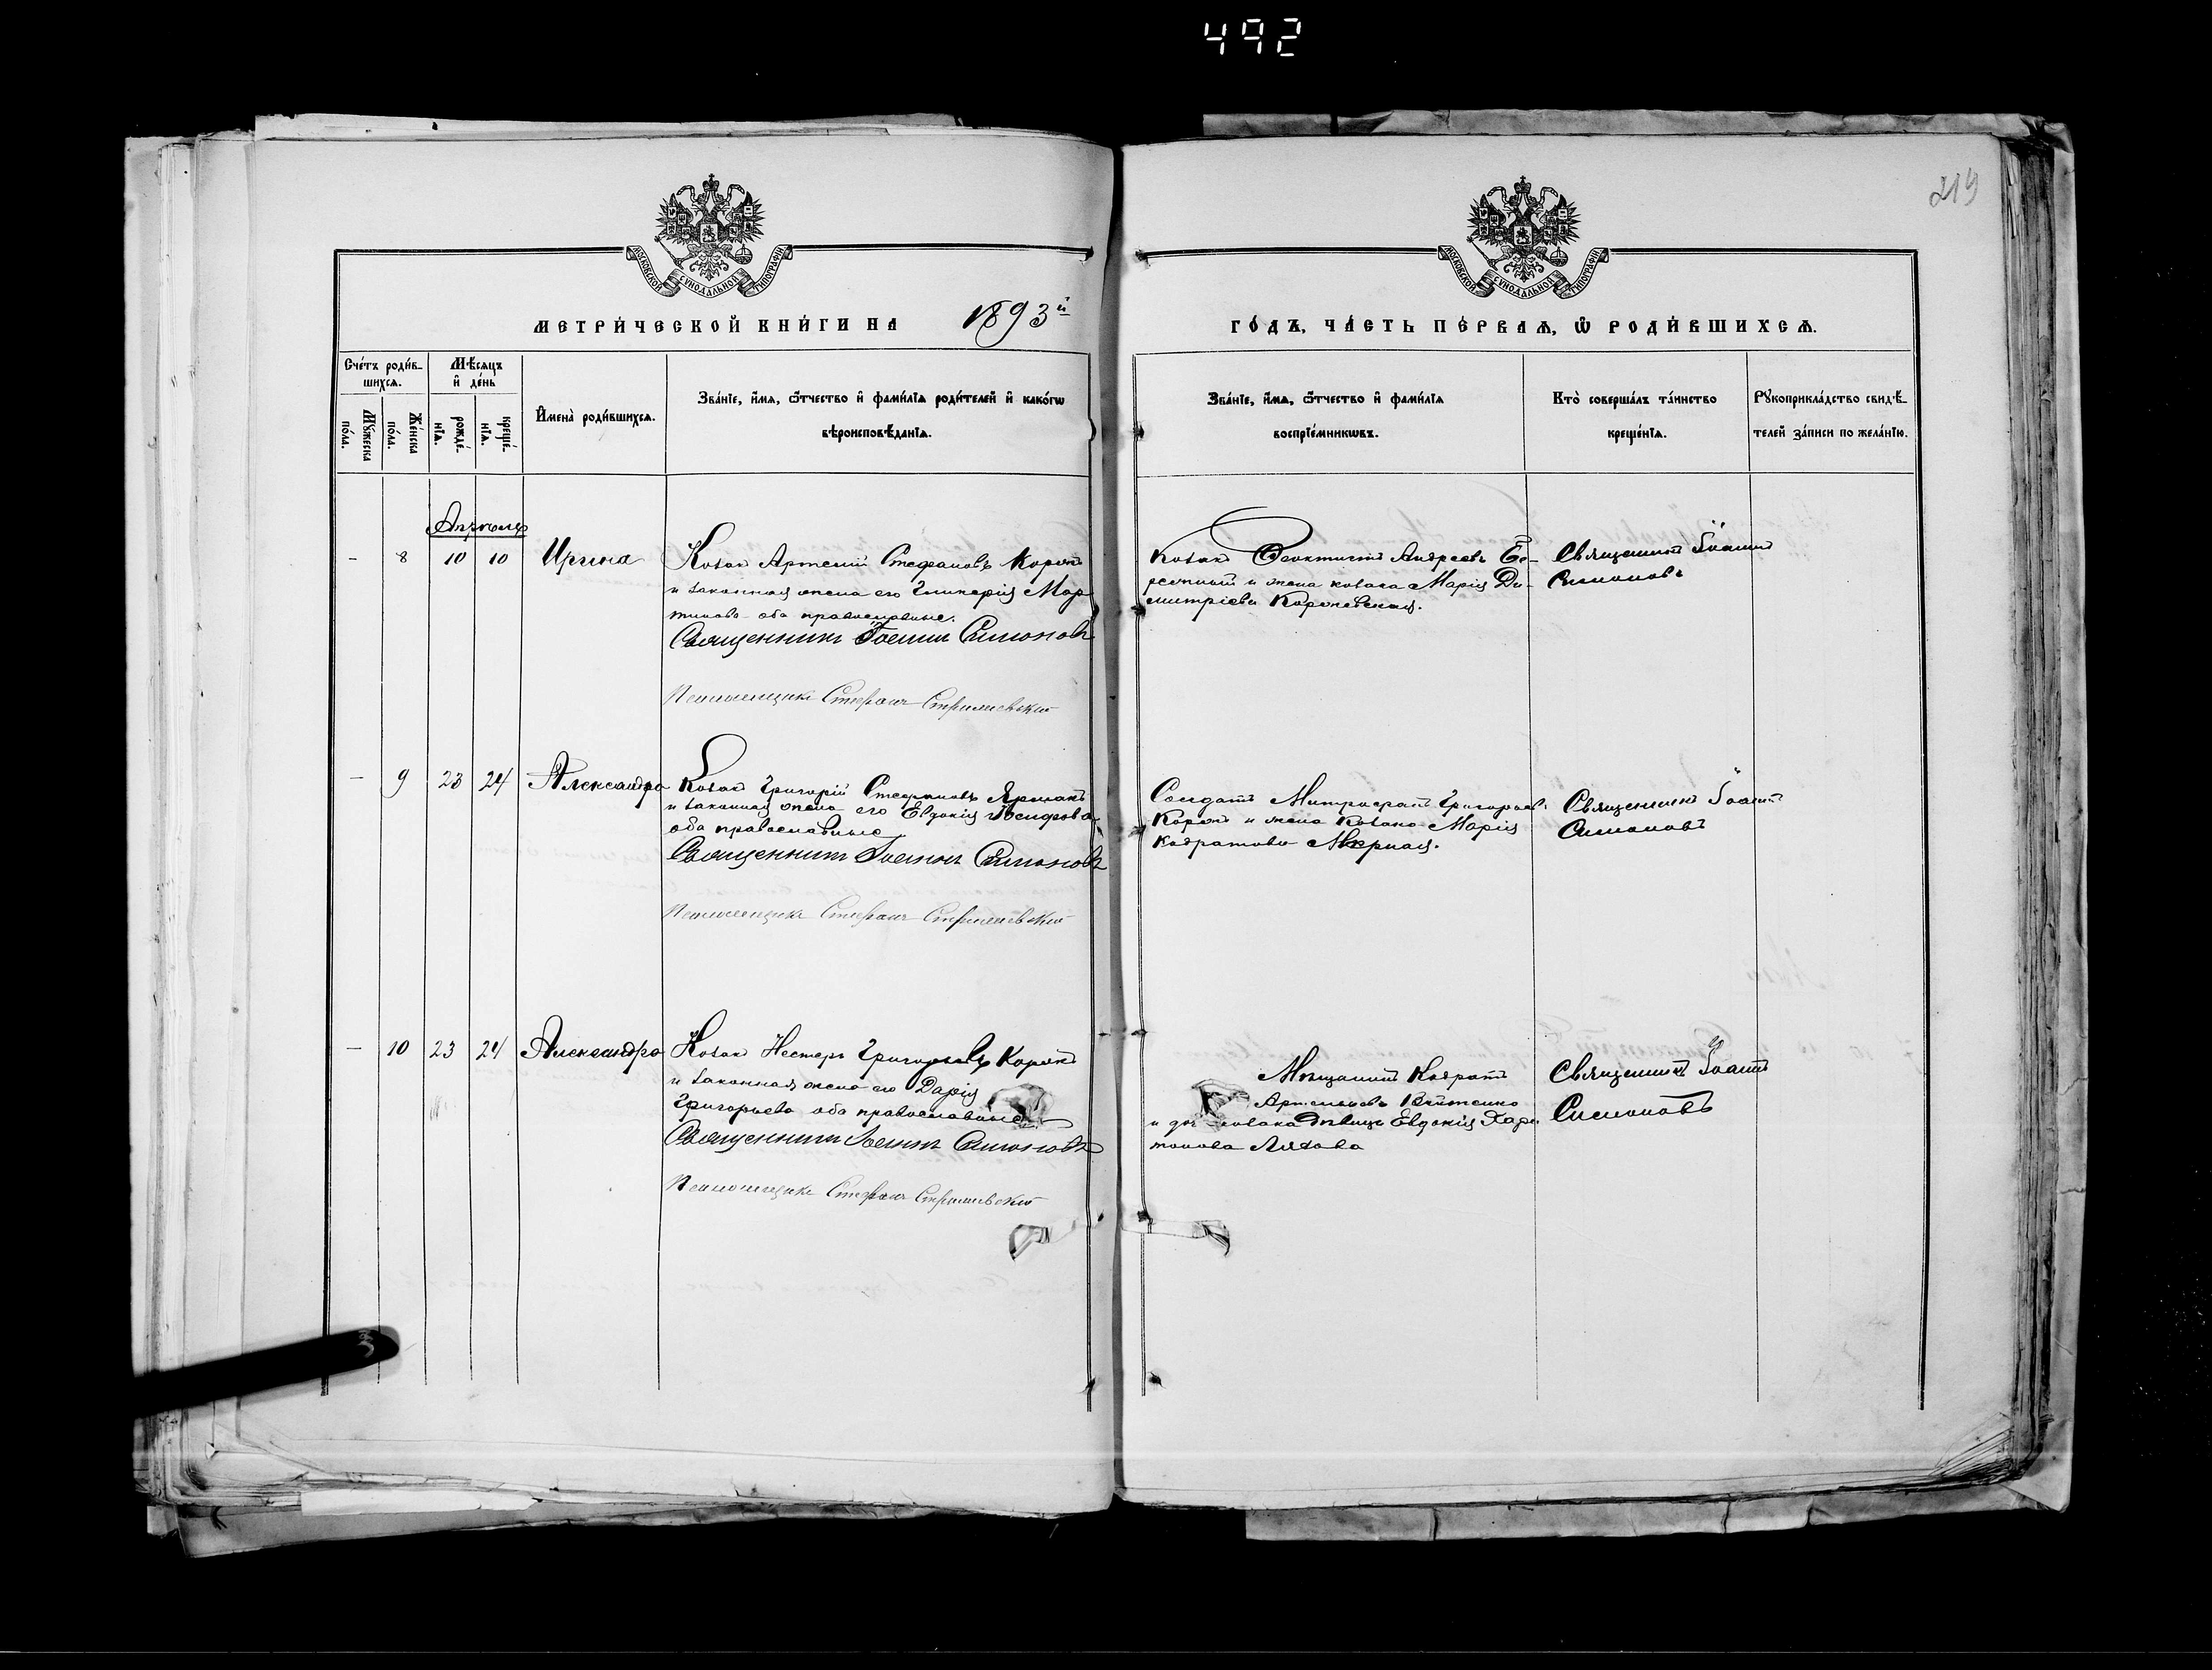 492
219
МОСКОВСКОЙ СѴНОДАЛЬНОЙ ТИПОГРАФІИ
МОСКОВСКОЙ СѴНОДАЛЬНОЙ ТИПОГРАФІИ
МЕТРИ́ЧЕСКОЙ КНИ́ГИ НА 1893й
ГО́ДЪ, ЧА́СТЬ ПЕ́РВАЯ, Ѡ РОДИ́ВШИХСЯ.
Сче́тъ роди́в-
шихся.
Му́жеска
по́ла.
Же́нска
по́ла.
Мѣ́сяцъ
и де́нь
рожде́-
нїя.
креще́-
нїя.
Имена̀ роди́вшихся.
Зва́нїе, и́мя, ѻ́тчество и фами́лїя роди́телей и како́гѡ
вѣроисповѣ́данїя.
Зва́нїе, и́мя, ѻ́тчество и фами́лїя
воспрїе́мникѡвъ.
Кто̀ соверша́лъ та́инство
креще́нїя.
Рꙋкоприкла́дство свидѣ́-
телей за́писи по жела́нїю.
Апрѣль
- 8 10 10 Ирина
Козак Артемій Стефановъ Корж
и законная жена его Гликерія Мар
тинова оба православные.
Священникъ Іоаннъ Симоновъ
Псаломщикъ Стефанъ
Козак Феоктистъ Андреевъ
и жена козака Марія Ди-
митріева
Священникъ Іоаннъ
Симоновъ
- 9 23 24 Александра
Козак Григорій Стефановъ
и законная жена его Евдокія Іосифова
оба православные
Священникъ Іоаннъ Симоновъ
Псаломщикъ Стефанъ
Солдатъ Митрофанъ Григорьев.
Корж и жена козака Марія
Кодратова
Священникъ Іоаннъ
Симоновъ
- 10 23 24 Александра
Козак Нестеръ Григорьевъ Корж
и законная жена его Дарія
Григорьева оба православные
Священникъ Іоаннъ Симоновъ
Псаломщикъ Стефанъ
Мѣщанинъ Кодратъ
и козака дѣвица Евдокія Хари
тонова
Священникъ Іоаннъ
Симоновъ